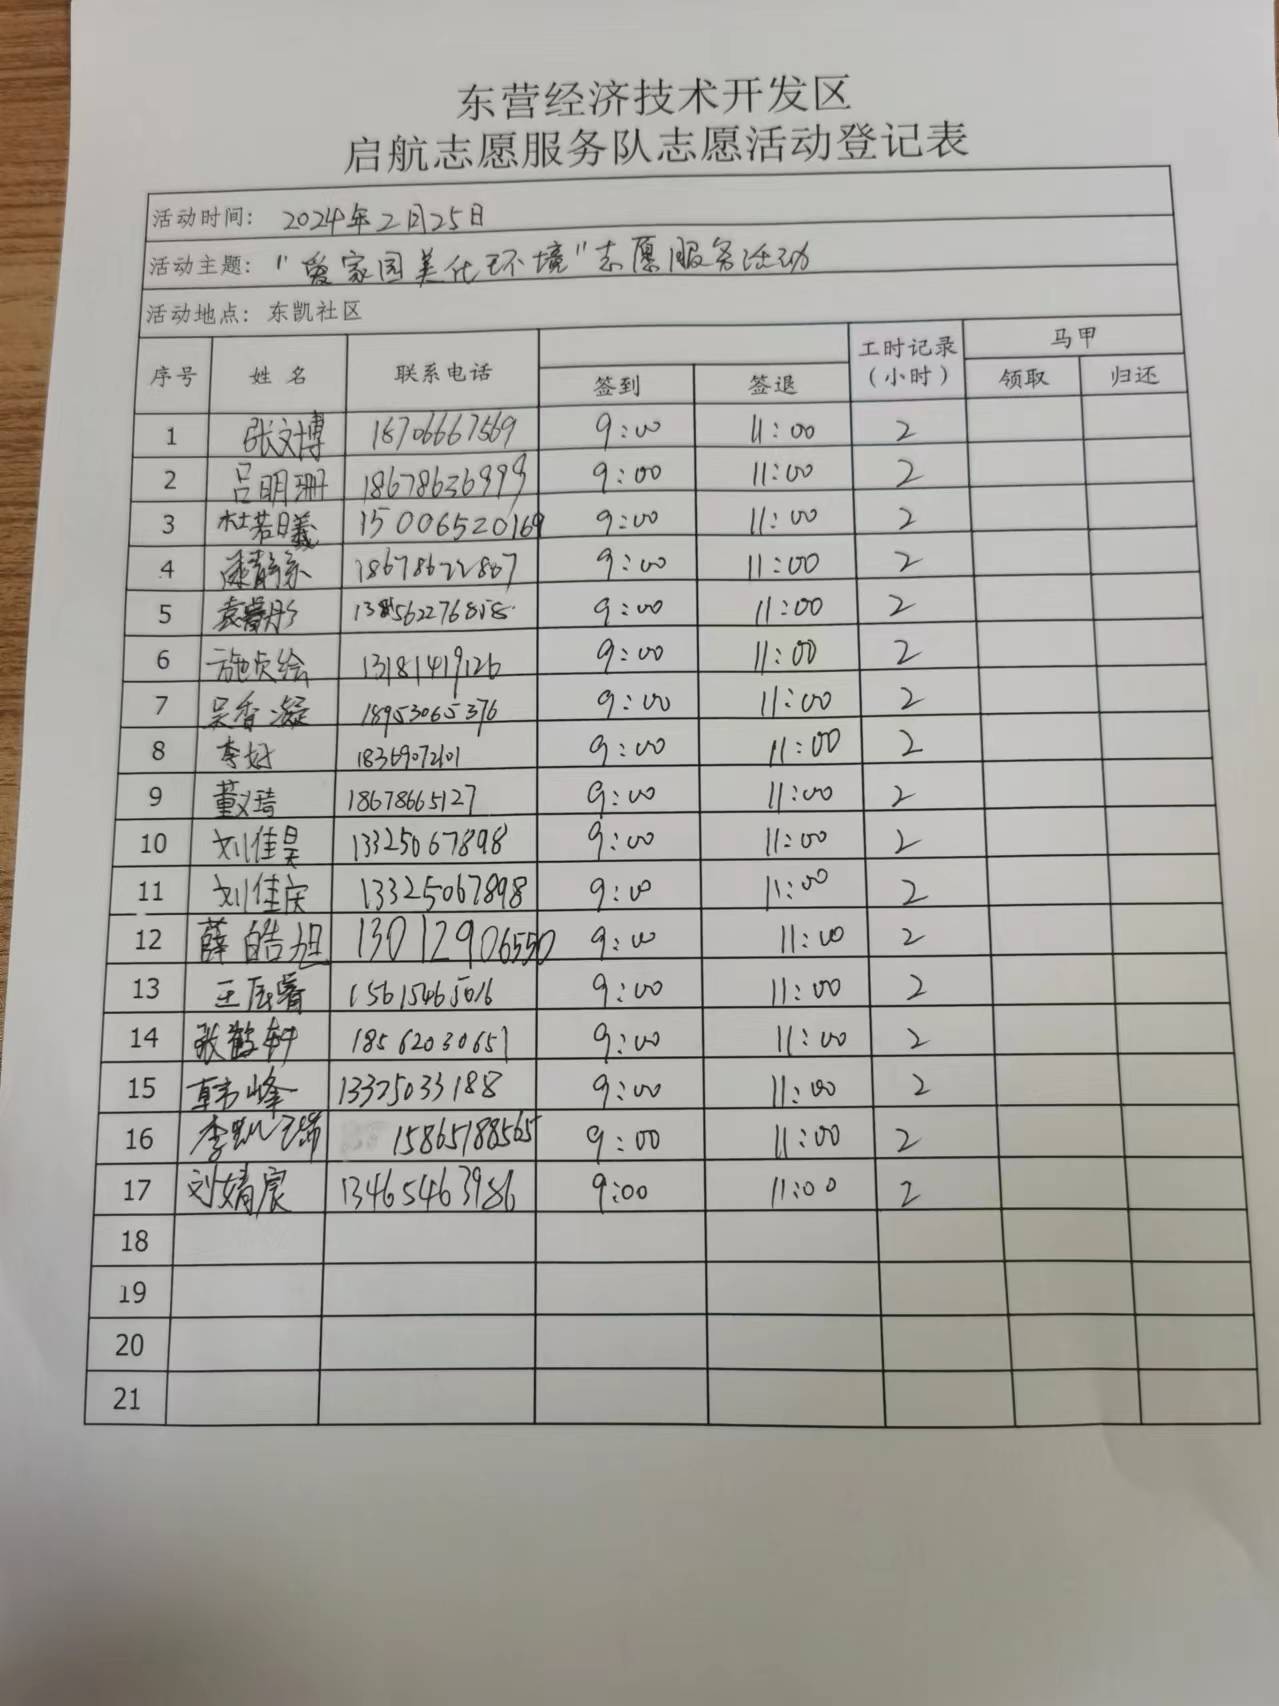 东营经济技术开发区
启航志愿服务队志愿活动登记表
活动时间: 2024年2月25日
活动主题: "爱家园美化环境"志愿服务活动
活动地点: 东凯社区
序号 姓名 联系电话 工时记录 马甲
签到 签退 (小时) 领取 归还
1 张文博 18706667569 9:00 11:00 2
2 吕明珊 18678636999 9:00 11:00 2
3 杜若曦 15006520169 9:00 11:00 2
4 18678622807 9:00 11:00 2
5 9:00 11:00 2
6 施贞绘 13181419126 9:00 11:00 2
7 吴香凝 18953065376 9:00 11:00 2
8 李好 18369072101 9:00 11:00 2
9 董义琦 18678665127 9:00 11:00 2
10 刘佳昊 13325067898 9:00 11:00 2
11 刘佳庆 13325067898 9:00 11:00 2
12 薛皓旭 13012906550 9:00 11:00 2
13 王辰睿 15615465016 9:00 11:00 2
14 18562030651 9:00 11:00 2
15 韩峰 13325033188 9:00 11:00 2
16 李凯瑞 15865188565 9:00 11:00 2
17 刘婧宸 13465463986 9:00 11:00 2
18
19
20
21